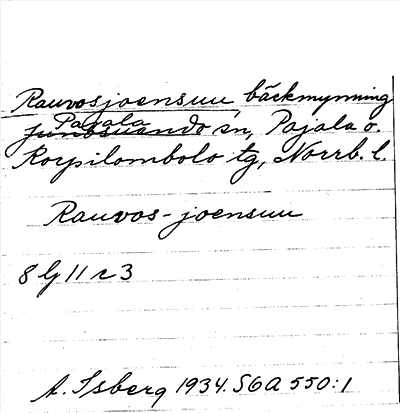 Rauvosjoensuu, bäckmynning
Pajala
Junosuando sn, Pajala o.
Korpilombolo tg, Norrb. l.
Rauvos-joensuu
8 lj 11 r 3
A. Isberg 1934. SGA 550:1